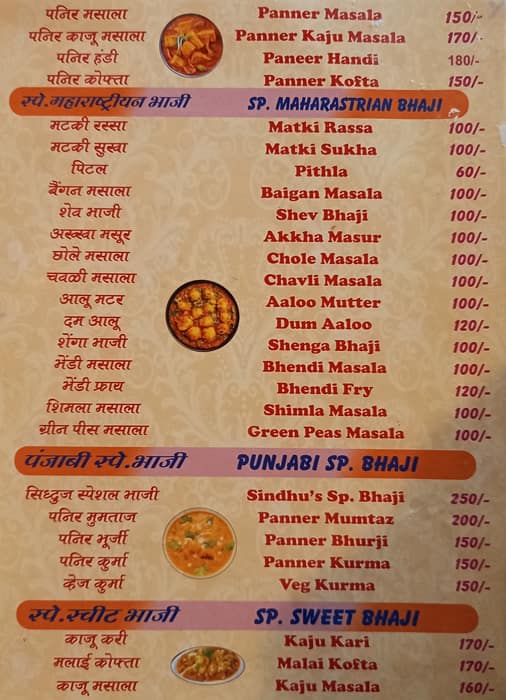 पनिर मसाला Panner Masala 150/-
पनिर काजू मसाला Panner Kaju Masala 170/-
पनिर हंडी Paneer Handi 180/-
पनिर कोफ्ता Panner Kofta 150/-
स्पे.महाराष्ट्रीयन भाजी SP. MAHARASTRIAN BHAJI
मटकी रस्सा Matki Rassa 100/-
मटकी सुखा Matki Sukha 100/-
पिटल Pithla 60/-
बैंगन मसाला Baigan Masala 100/-
शेव भाजी Shev Bhaji 100/-
अख्खा मसूर Akkha Masur 100/-
छोले मसाला Chole Masala 100/-
चवळी मसाला Chavli Masala 100/-
आलू मटर Aaloo Mutter 100/-
दम आलू Dum Aaloo 120/-
शेंगा भाजी Shenga Bhaji 100/-
भेंडी मसाला Bhendi Masala 100/-
भेंडी फ्राय Bhendi Fry 120/-
शिमला मसाला Shimla Masala 100/-
ग्रीन पीस मसाला Green Peas Masala 100/-
पंजाबी स्पे.भाजी PUNJABI SP. BHAJI
सिध्दुज स्पेशल भाजी Sindhu's Sp. Bhaji 250/-
पनिर मुमताज Panner Mumtaz 200/-
पनिर भूर्जी Panner Bhurji 150/-
पनिर कुर्मा Panner Kurma 150/-
व्हेज कुर्मा Veg Kurma 150/-
स्पे.स्वीट भाजी SP. SWEET BHAJI
काजू करी Kaju Kari 170/-
मलाई कोफ्ता Malai Kofta 170/-
काजू मसाला Kaju Masala 160/-